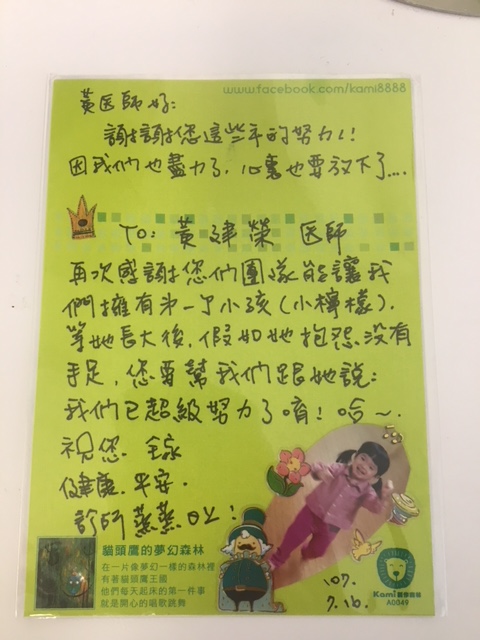 www.facebook.com/kami8888
黃医師好:
謝謝您這些年的努力!
因我們也盡力了,心裏也要放下了....
To: 黃建榮 医師
再次感謝您們團隊能讓我
們擁有第一个小孩(小檸檬).
等她長大後,假如她抱怨沒有
手足,您要幫我們跟她說:
我們已超級努力了唷!哈~.
祝您.全家
健康.平安.
診所蒸蒸日上!
貓頭鷹的夢幻森林
在一片像夢幻一樣的森林裡
有著貓頭鷹王國
他們每天起床的第一件事
就是開心的唱歌跳舞
107.
7.16.
Kami
A0049